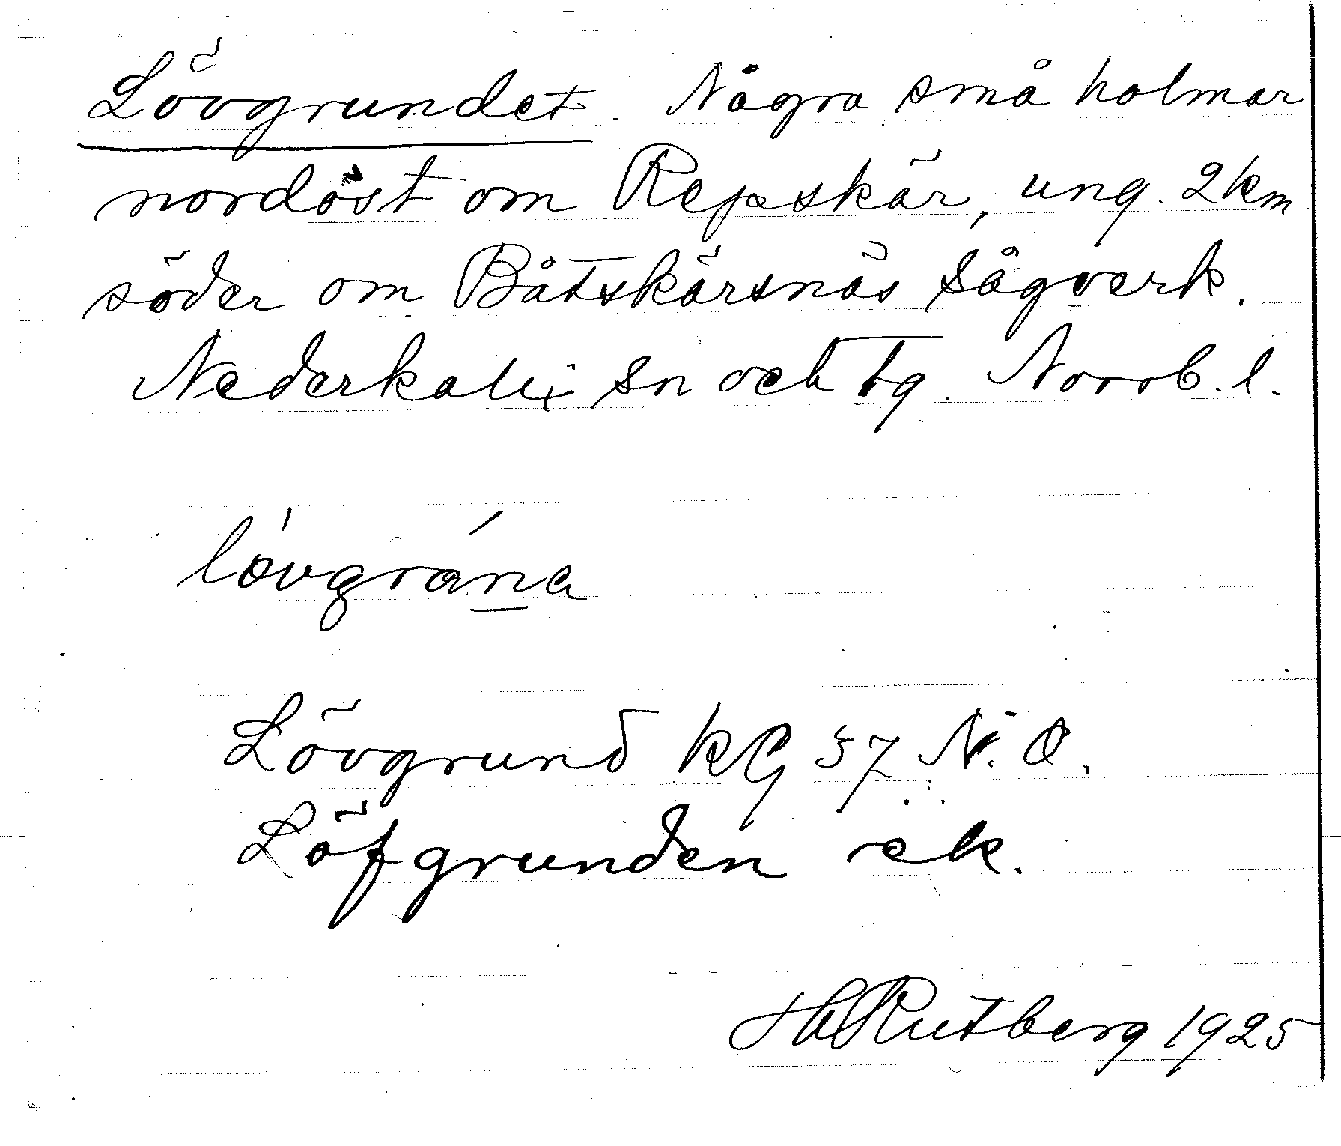 Lövgrundet. Några små holmar
nordöst om Repskär, ung. 2 km
söder om Båtskärsnäs sågverk.
Nederkalix sn och tg. Norrb. l.
lövgrána
Lövgrund KG 57 N.O.
Löfgrunden ek.
H Rutberg 1925